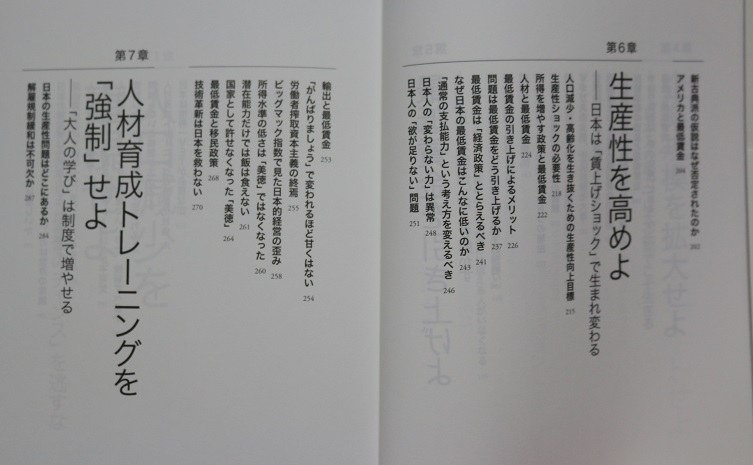 新古典派の仮説はなぜ否定されたのか 202
アメリカと最低賃金 206
第6章
生産性を高めよ
――日本は「賃上げショック」で生まれ変わる
人口減少・高齢化を生き抜くための生産性向上目標 215
生産性ショックの必要性 218
所得を増やす政策と最低賃金 222
人材と最低賃金 224
最低賃金の引き上げによるメリット 226
問題は最低賃金をどう引き上げるか 237
最低賃金は「経済政策」ととらえるべき 241
なぜ日本の最低賃金はこんなに低いのか 243
「通常の支払能力」という考え方を変えるべき 246
日本人の「変わらない力」は異常 248
日本人の「欲が足りない」問題 251
輸出と最低賃金 253
「がんばりましょう」で変われるほど甘くはない 254
労働者搾取資本主義の終焉 255
ビッグマック指数で見た日本的経営の歪み 258
所得水準の低さは「美徳」ではなくなった 260
潜在能力だけでは飯は食えない 261
国家として許せなくなった「美徳」 264
最低賃金と移民政策 268
技術革新は日本を救わない 270
第7章
人材育成トレーニングを
「強制」せよ
――「大人の学び」は制度で増やせる
日本の生産性問題はどこにあるか 284
解雇規制緩和は不可欠か 287